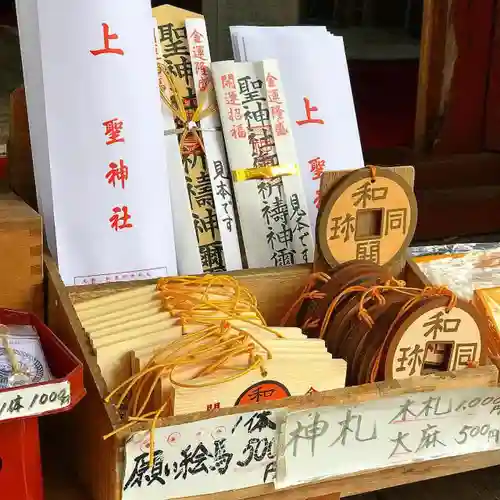 上
聖神社
金運隆盛
聖神
祈祷神璽
見本です
金運隆盛
開運招福
聖神
祈祷神璽
見本です
上
聖神
和
同
開
珎
和
同
開
珎
和
1体100円
願い絵馬 1体500円
神札
木札 1,000円
大麻 500円